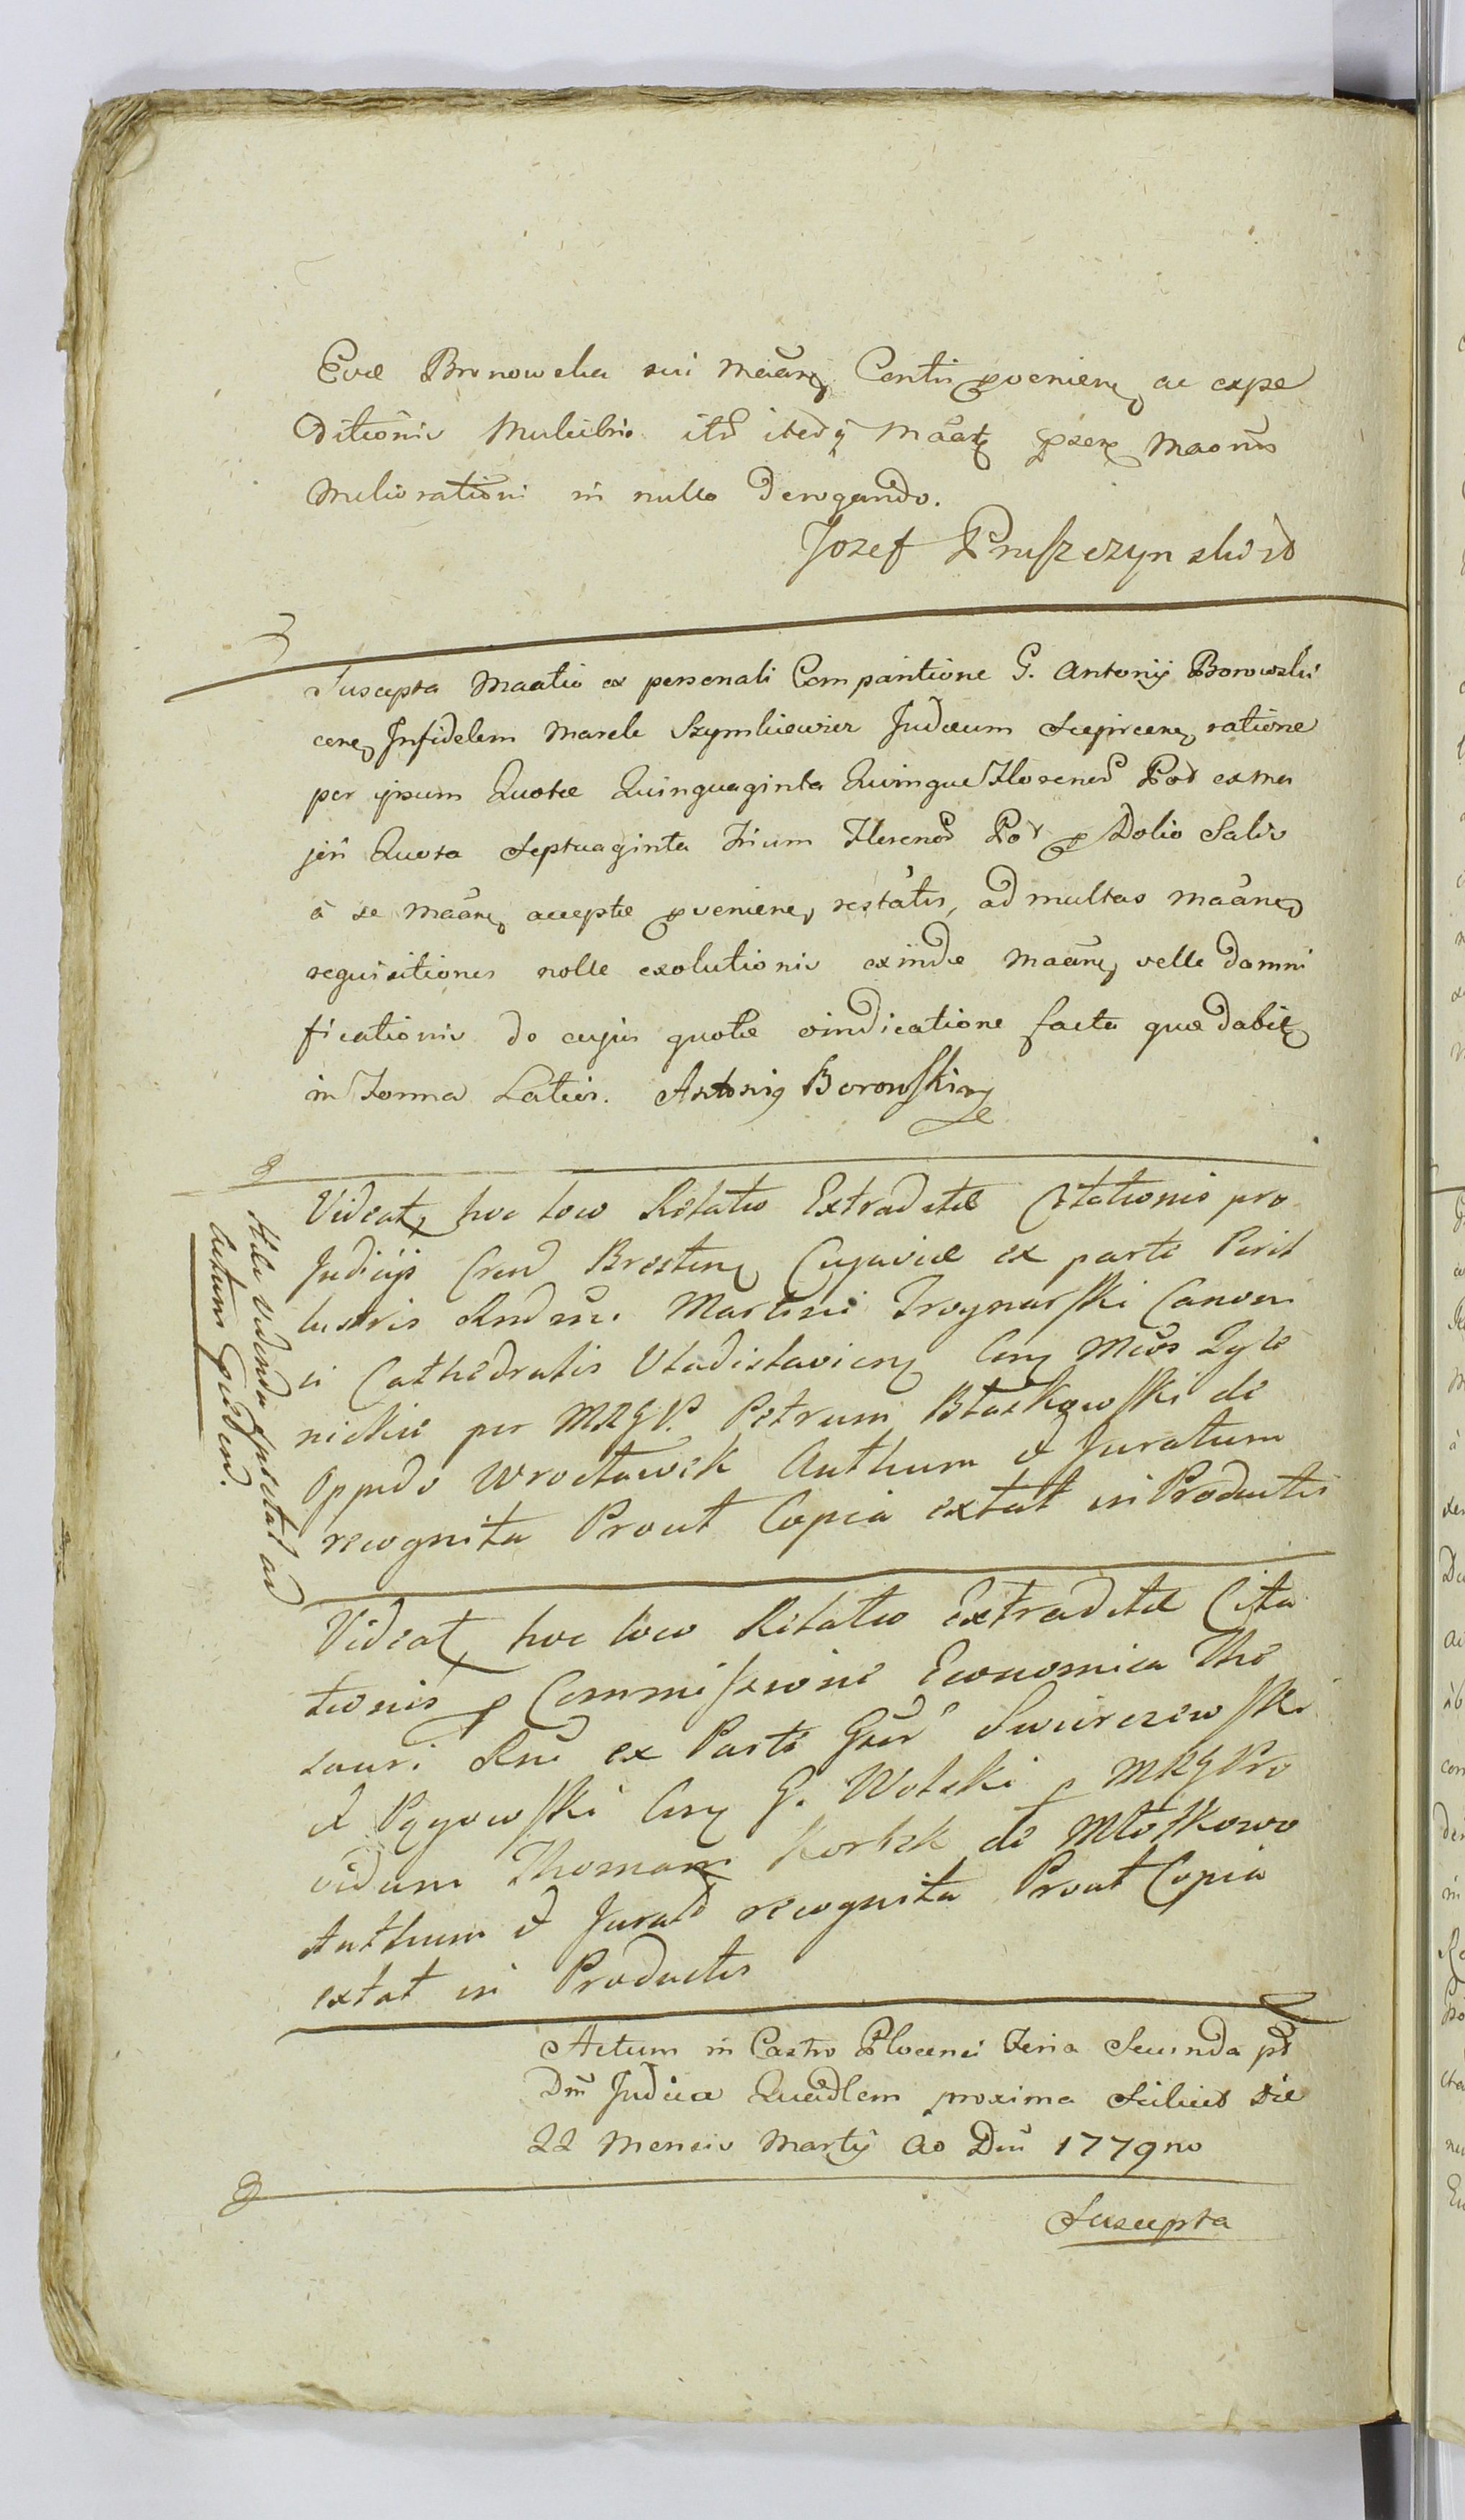 Evæ Bronowska sui Mããnẽ Contis pvenienẽ ac expe
ditionis Muliebris itd ibedq Mãatẽ Maonis
Meliorationi in nullo derogando.
Jozef Pruszczynski
Suscepta Maatio ex personali Comparitione G. Antonij Borowski
cenẽ Infidelem Marek Szymkiewicz Judæum Sieprcenẽ ratione
per ipsum Quotæ Quinguaginta Quinque Florenõ Pol ex ma
jori Quota Septuaginta Trium Florenõ Pol p Dolio Salis
à se Mãanẽ acceptæ pvenienẽ restatis, ad multas Mãanẽ
requisitiones nolle exolutionis exinde Mãanẽ velle damni
ficationis de cujus quotæ vindicatione facta quæ dabit
in Forma Latius. Antonig Borowski
Videatẽ hoc loco Relatio Extraditæ Citationis pro
Judicijs Crend Brestenẽ Cujaviæ ex parte Peril
lustris Rndmi Martini Trognarski Canoni
ci Cathedralis Vladislaviens Cenẽ Mcos Zyle
nickie per MRGP. Petrum Błaszkowski de
Oppido Wrocławek Authum & Juratum
recognita Prout Copia extat in Productis
Hic videnda spectat ad
Actum
Videatẽ hoc loco Relatio Extraditæ Cita
tionis p Commissione Economica The
sauri Rni ex Parte Gsor Swierczewski
& Pągowski Cenẽ G. Wolski p MRGPro
vidum Thomam Korbek de Młoszkowo
Authum & Jurat recognita Prout Copia
extat in Productis
Actum in Castro Plocensi Feria Secunda pt
Dm̃ Judica Quadlem proxima Scilicet Die
22 Mensis Martij Ao Dni 1779no
Suscepta